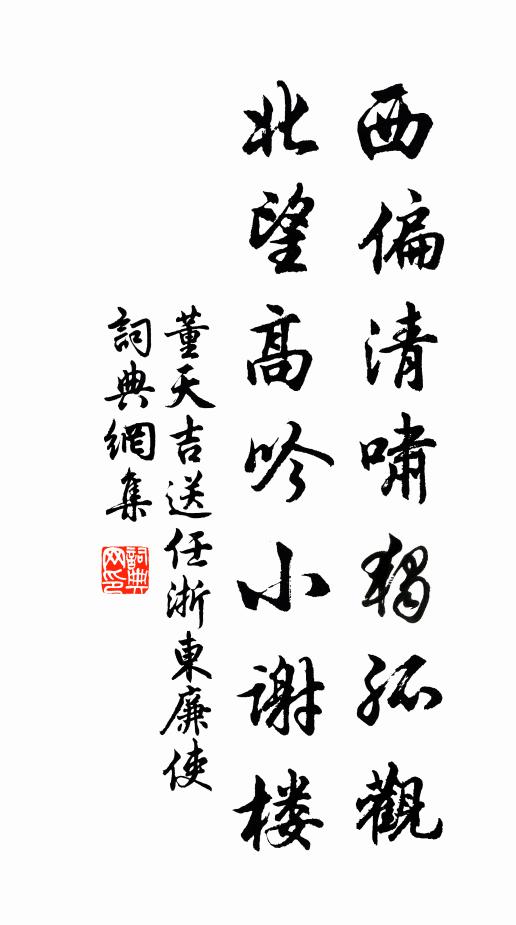 西偏清啸独孤觀
北望高吟小谢楼
董天吉送任浙東廉使
詞典網集
詞典网印